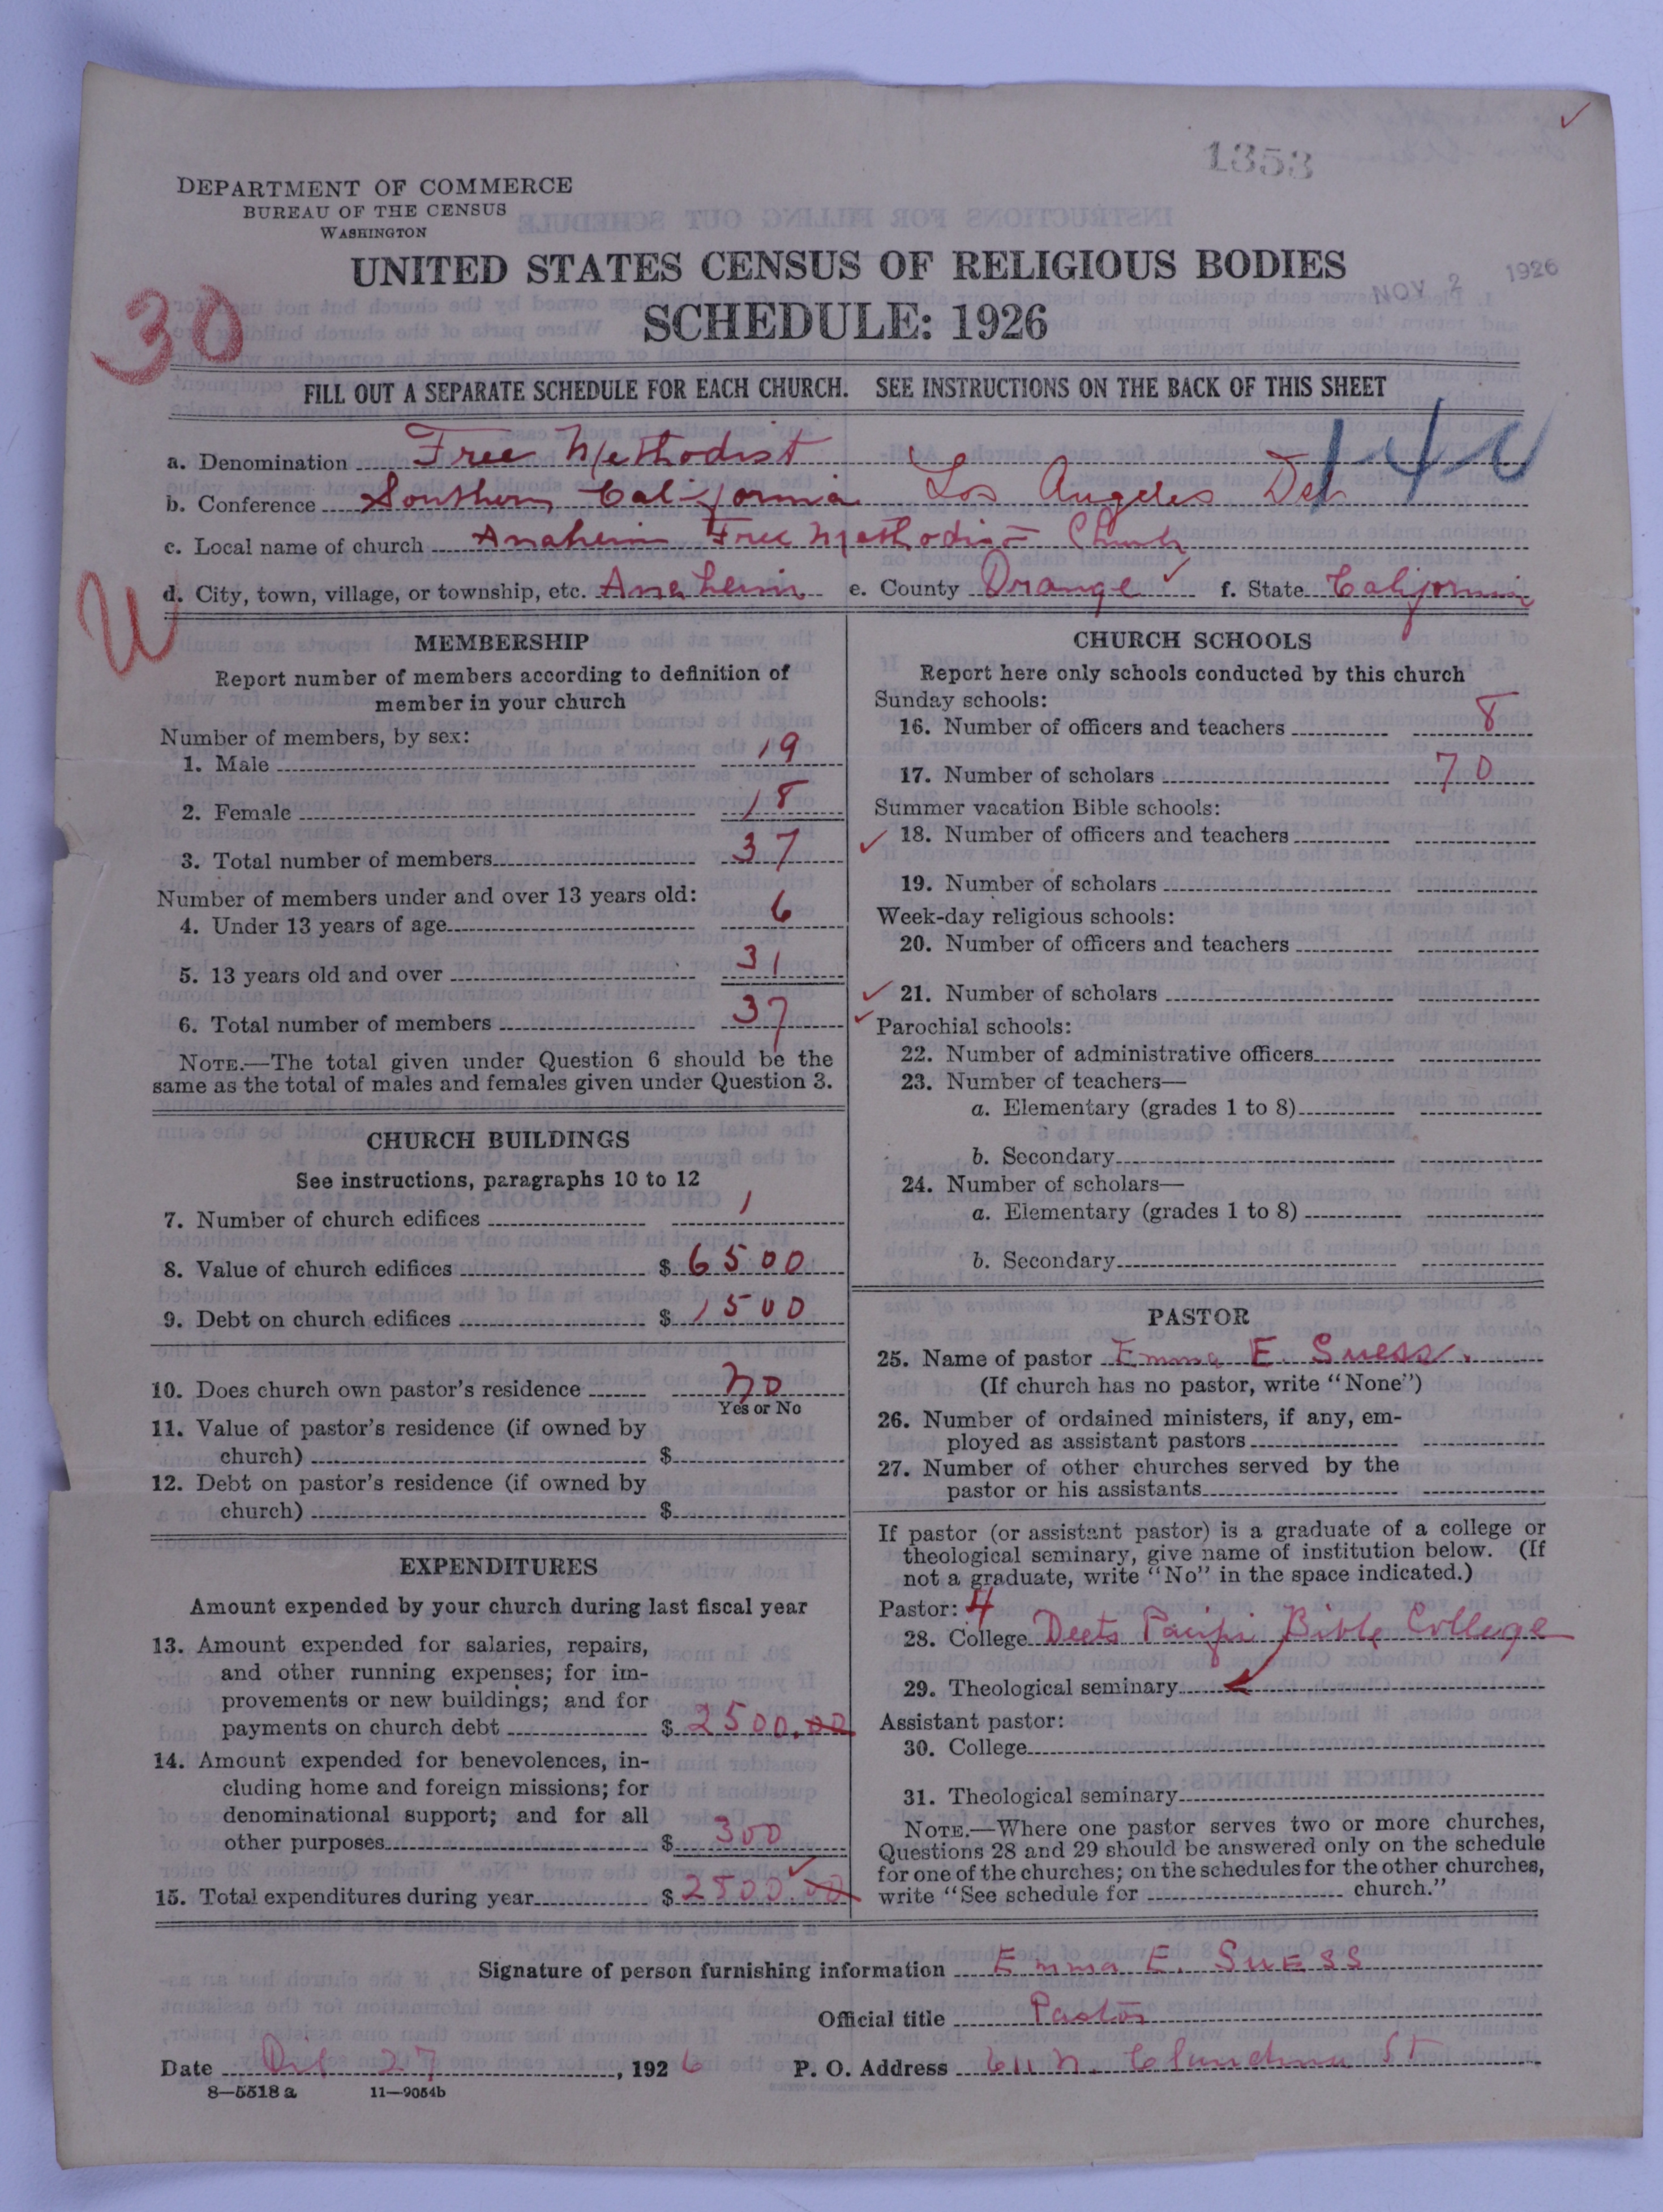 1353
DEPARTMENT OF COMMERCE
BUREAU OF THE CENSUS
WASHINGTON
UNITED STATES CENSUS OF RELIGIOUS BODIES
NOV 2 1926
SCHEDULE: 1926
30
FILL OUT A SEPARATE SCHEDULE FOR EACH CHURCH. SEE INSTRUCTIONS ON THE BACK OF THIS SHEET
a. Denomination Free Methodist
b. Conference Southern California Los Angeles Dist
c. Local name of church Anaheim Free Methodist Church
d. City, town, village, or township, etc. Anaheim e. County Orange f. State California
U
MEMBERSHIP
Report number of members according to definition of
member in your church
Number of members, by sex:
1. Male 19
2. Female 18
3. Total number of members 37
Number of members under and over 13 years old:
4. Under 13 years of age 6
5. 13 years old and over 31
6. Total number of members 37
NOTE.—The total given under Question 6 should be the
same as the total of males and females given under Question 3.
CHURCH BUILDINGS
See instructions, paragraphs 10 to 12
7. Number of church edifices 1
8. Value of church edifices $ 6500
9. Debt on church edifices $ 1500
10. Does church own pastor's residence No
Yes or No
11. Value of pastor's residence (if owned by
church) $
12. Debt on pastor's residence (if owned by
church) $
EXPENDITURES
Amount expended by your church during last fiscal year
13. Amount expended for salaries, repairs,
and other running expenses; for im-
provements or new buildings; and for
payments on church debt $ 2500.00
14. Amount expended for benevolences, in-
cluding home and foreign missions; for
denominational support; and for all
other purposes $ 300
15. Total expenditures during year $ 2800 00
CHURCH SCHOOLS
Report here only schools conducted by this church
Sunday schools:
16. Number of officers and teachers 8
17. Number of scholars 70
Summer vacation Bible schools:
18. Number of officers and teachers
19. Number of scholars
Week-day religious schools:
20. Number of officers and teachers
21. Number of scholars
Parochial schools:
22. Number of administrative officers
23. Number of teachers—
a. Elementary (grades 1 to 8)
b. Secondary
24. Number of scholars—
a. Elementary (grades 1 to 8)
b. Secondary
PASTOR
25. Name of pastor Emma E. Suess.
(If church has no pastor, write "None")
26. Number of ordained ministers, if any, em-
ployed as assistant pastors
27. Number of other churches served by the
pastor or his assistants
If pastor (or assistant pastor) is a graduate of a college or
theological seminary, give name of institution below. (If
not a graduate, write "No" in the space indicated.)
Pastor: 4
28. College Deets Pacific Bible College
29. Theological seminary
Assistant pastor:
30. College
31. Theological seminary
NOTE.—Where one pastor serves two or more churches,
Questions 28 and 29 should be answered only on the schedule
for one of the churches; on the schedules for the other churches,
write "See schedule for church."
Signature of person furnishing information Emma E. Suess
Official title Pastor
Date 27, 1926 P. O. Address 611 N. St
8—5518 a 11—9054b